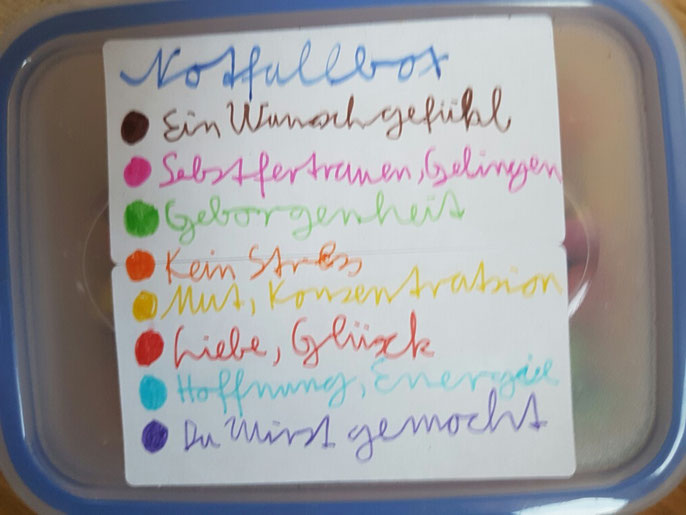 Notfallbox
Ein Wunschgefühl
Sebstfertrauen, Gelingen
Geborgenheit
Kein Stress
Mut, Konzentration
Liebe, Glück
Hoffnung, Energie
Du Wirst gemocht